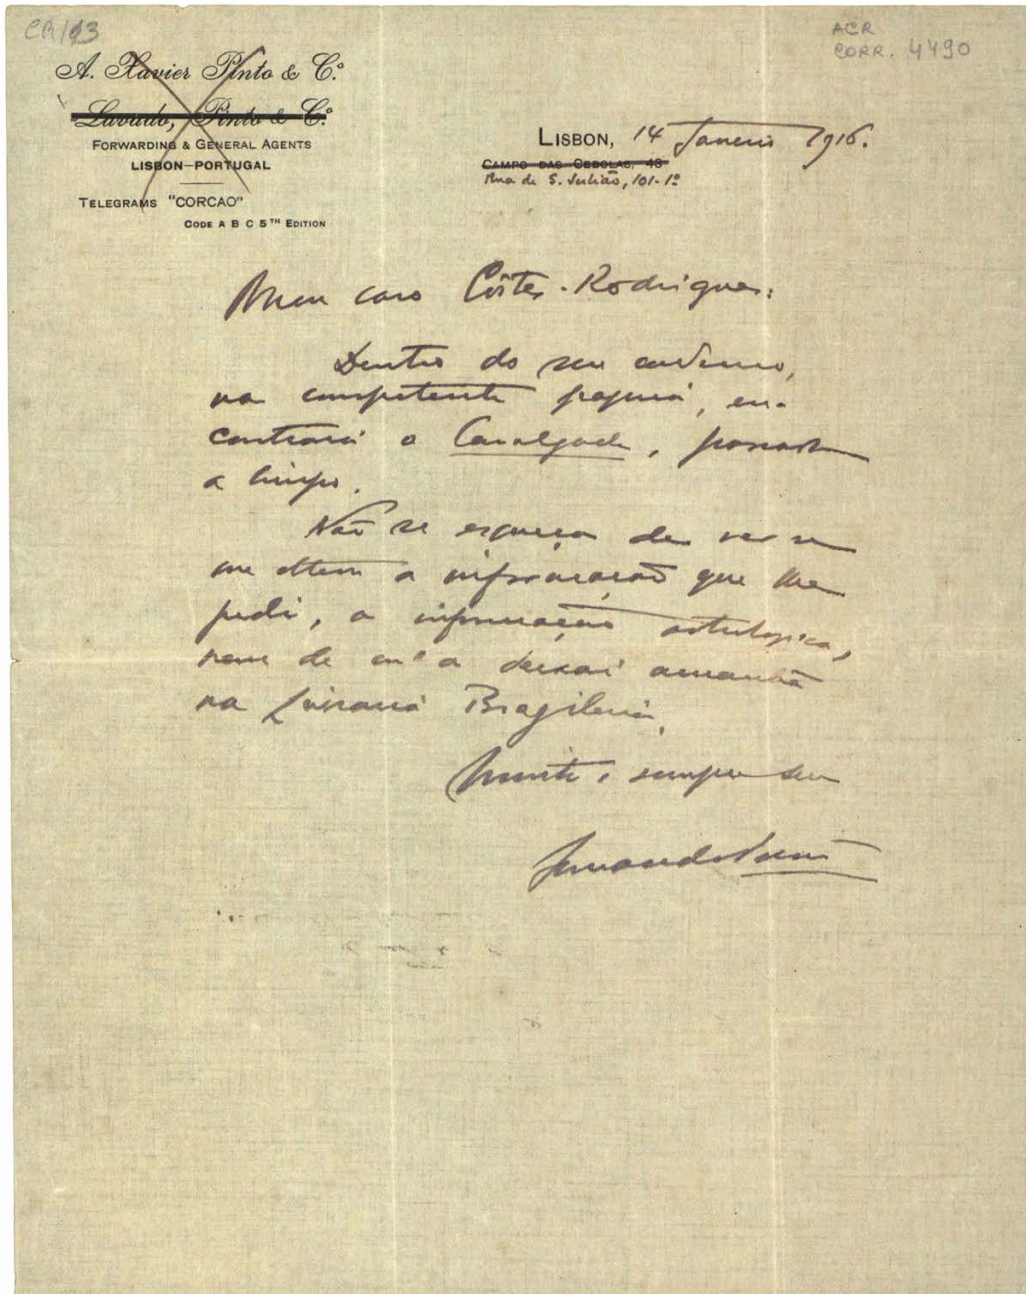 CR/13
ACR
CORR. 4490
A. Xavier Pinto & Cº
Lavado, Pinto & Cº
FORWARDING & GENERAL AGENTS
LISBON–PORTUGAL
TELEGRAMS "CORCAO"
CODE A B C 5TH EDITION
LISBON, 14 Janeiro 1916.
CAMPO DAS CEBOLAS, 43
Rua de S. Julião, 101-1º
Meu caro Côrtes-Rodrigues:
Dentro do seu caderno,
na competente pagina, en-
contrará a Cavalgada, passada
a limpo.
Não se esqueça de ver se
me obtem a informação que lhe
pedi, a informação astrologica,
nem de m'a deixar amanhã
na Livraria Brazileira.
Muito e sempre seu
Fernando Pessoa